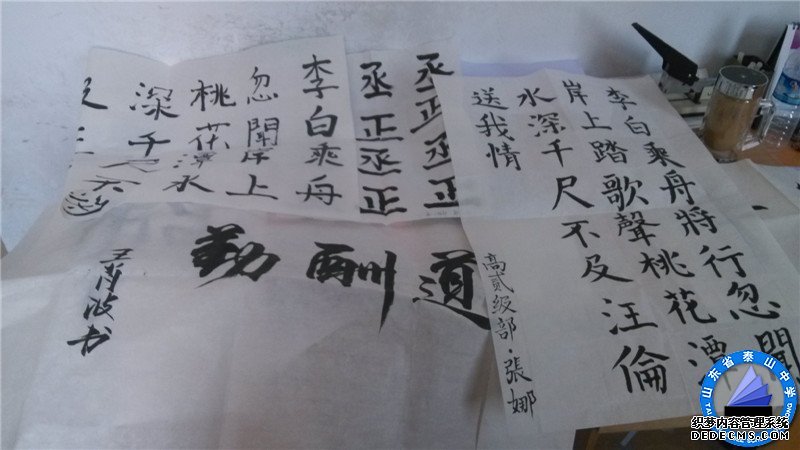 李白乘舟將行忽聞
岸上踏歌聲桃花潭
水深千尺不及汪倫
送我情
高貳級部·張娜
丞正丞正
丞正丞正
李白乘舟
忽聞岸上
桃花潭水
深千尺
道酬勤
山东省泰山中学
织梦内容管理系统
DEDECMS.COM